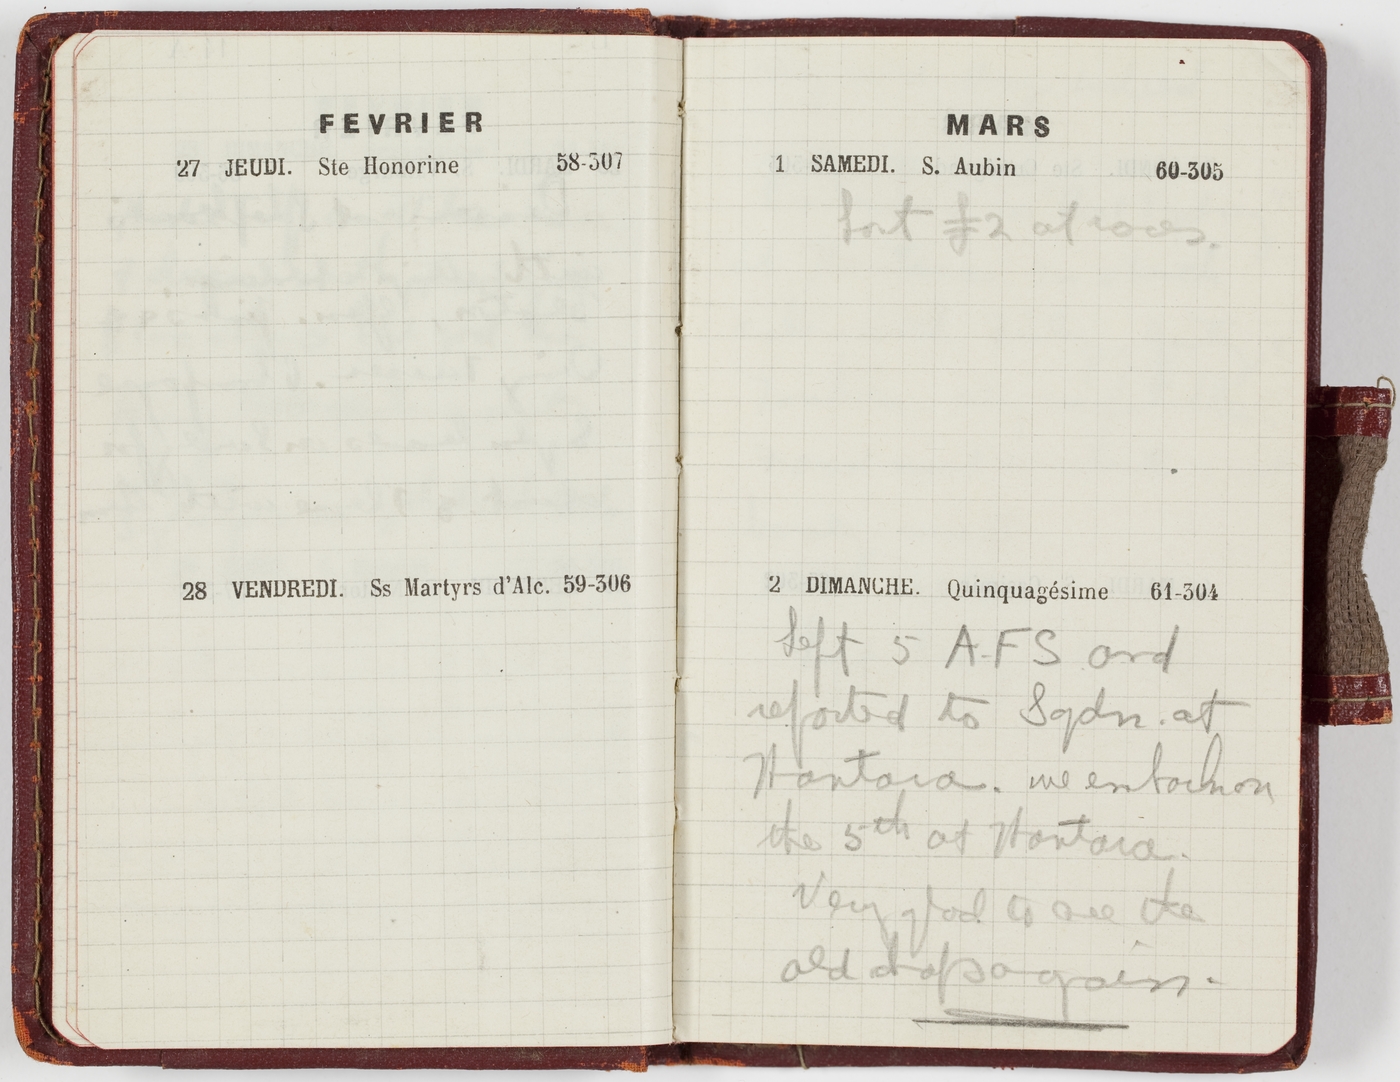 FEVRIER
27 JEUDI. Ste Honorine 58-307
28 VENDREDI. Ss Martyrs d'Alc. 59-306
MARS
1 SAMEDI. S. Aubin 60-305
Lost £2 at races.
2 DIMANCHE. Quinquagésime 61-304
Left 5 A.F.S and
reported to Sqdn. at
Kantara. we embark on
the 5th at Kantara.
Very glad to see the
old chaps again.